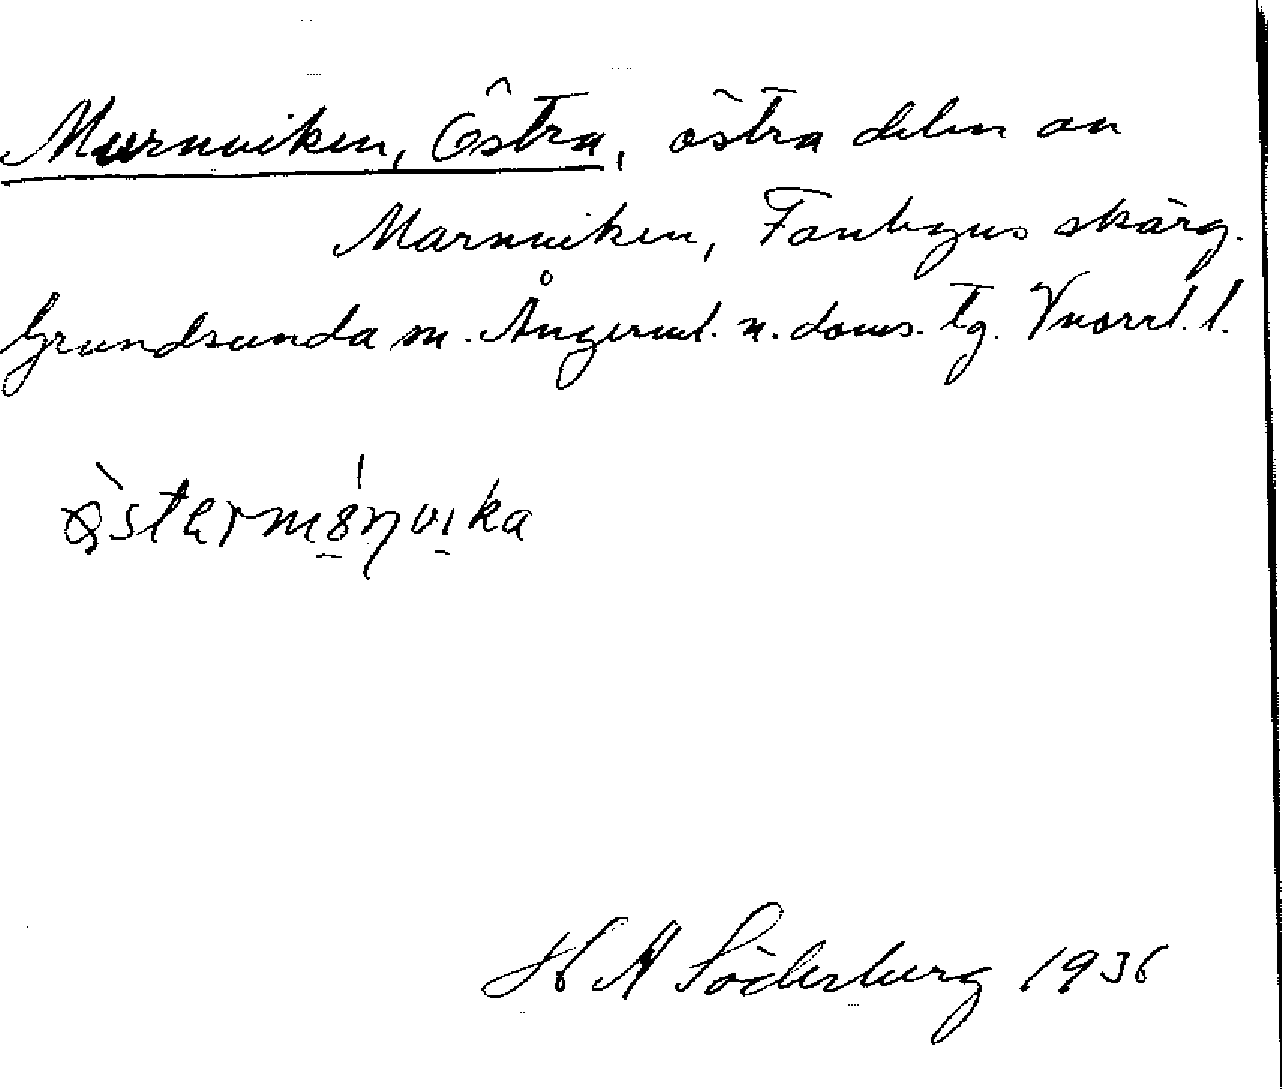 Marnviken, Östra, östra delen av
Marnviken, Fanbyns skärg.
Grundsunda sn. Ångerml. n. doms. tg. Vnorrl. l.
H A Söderberg 1936